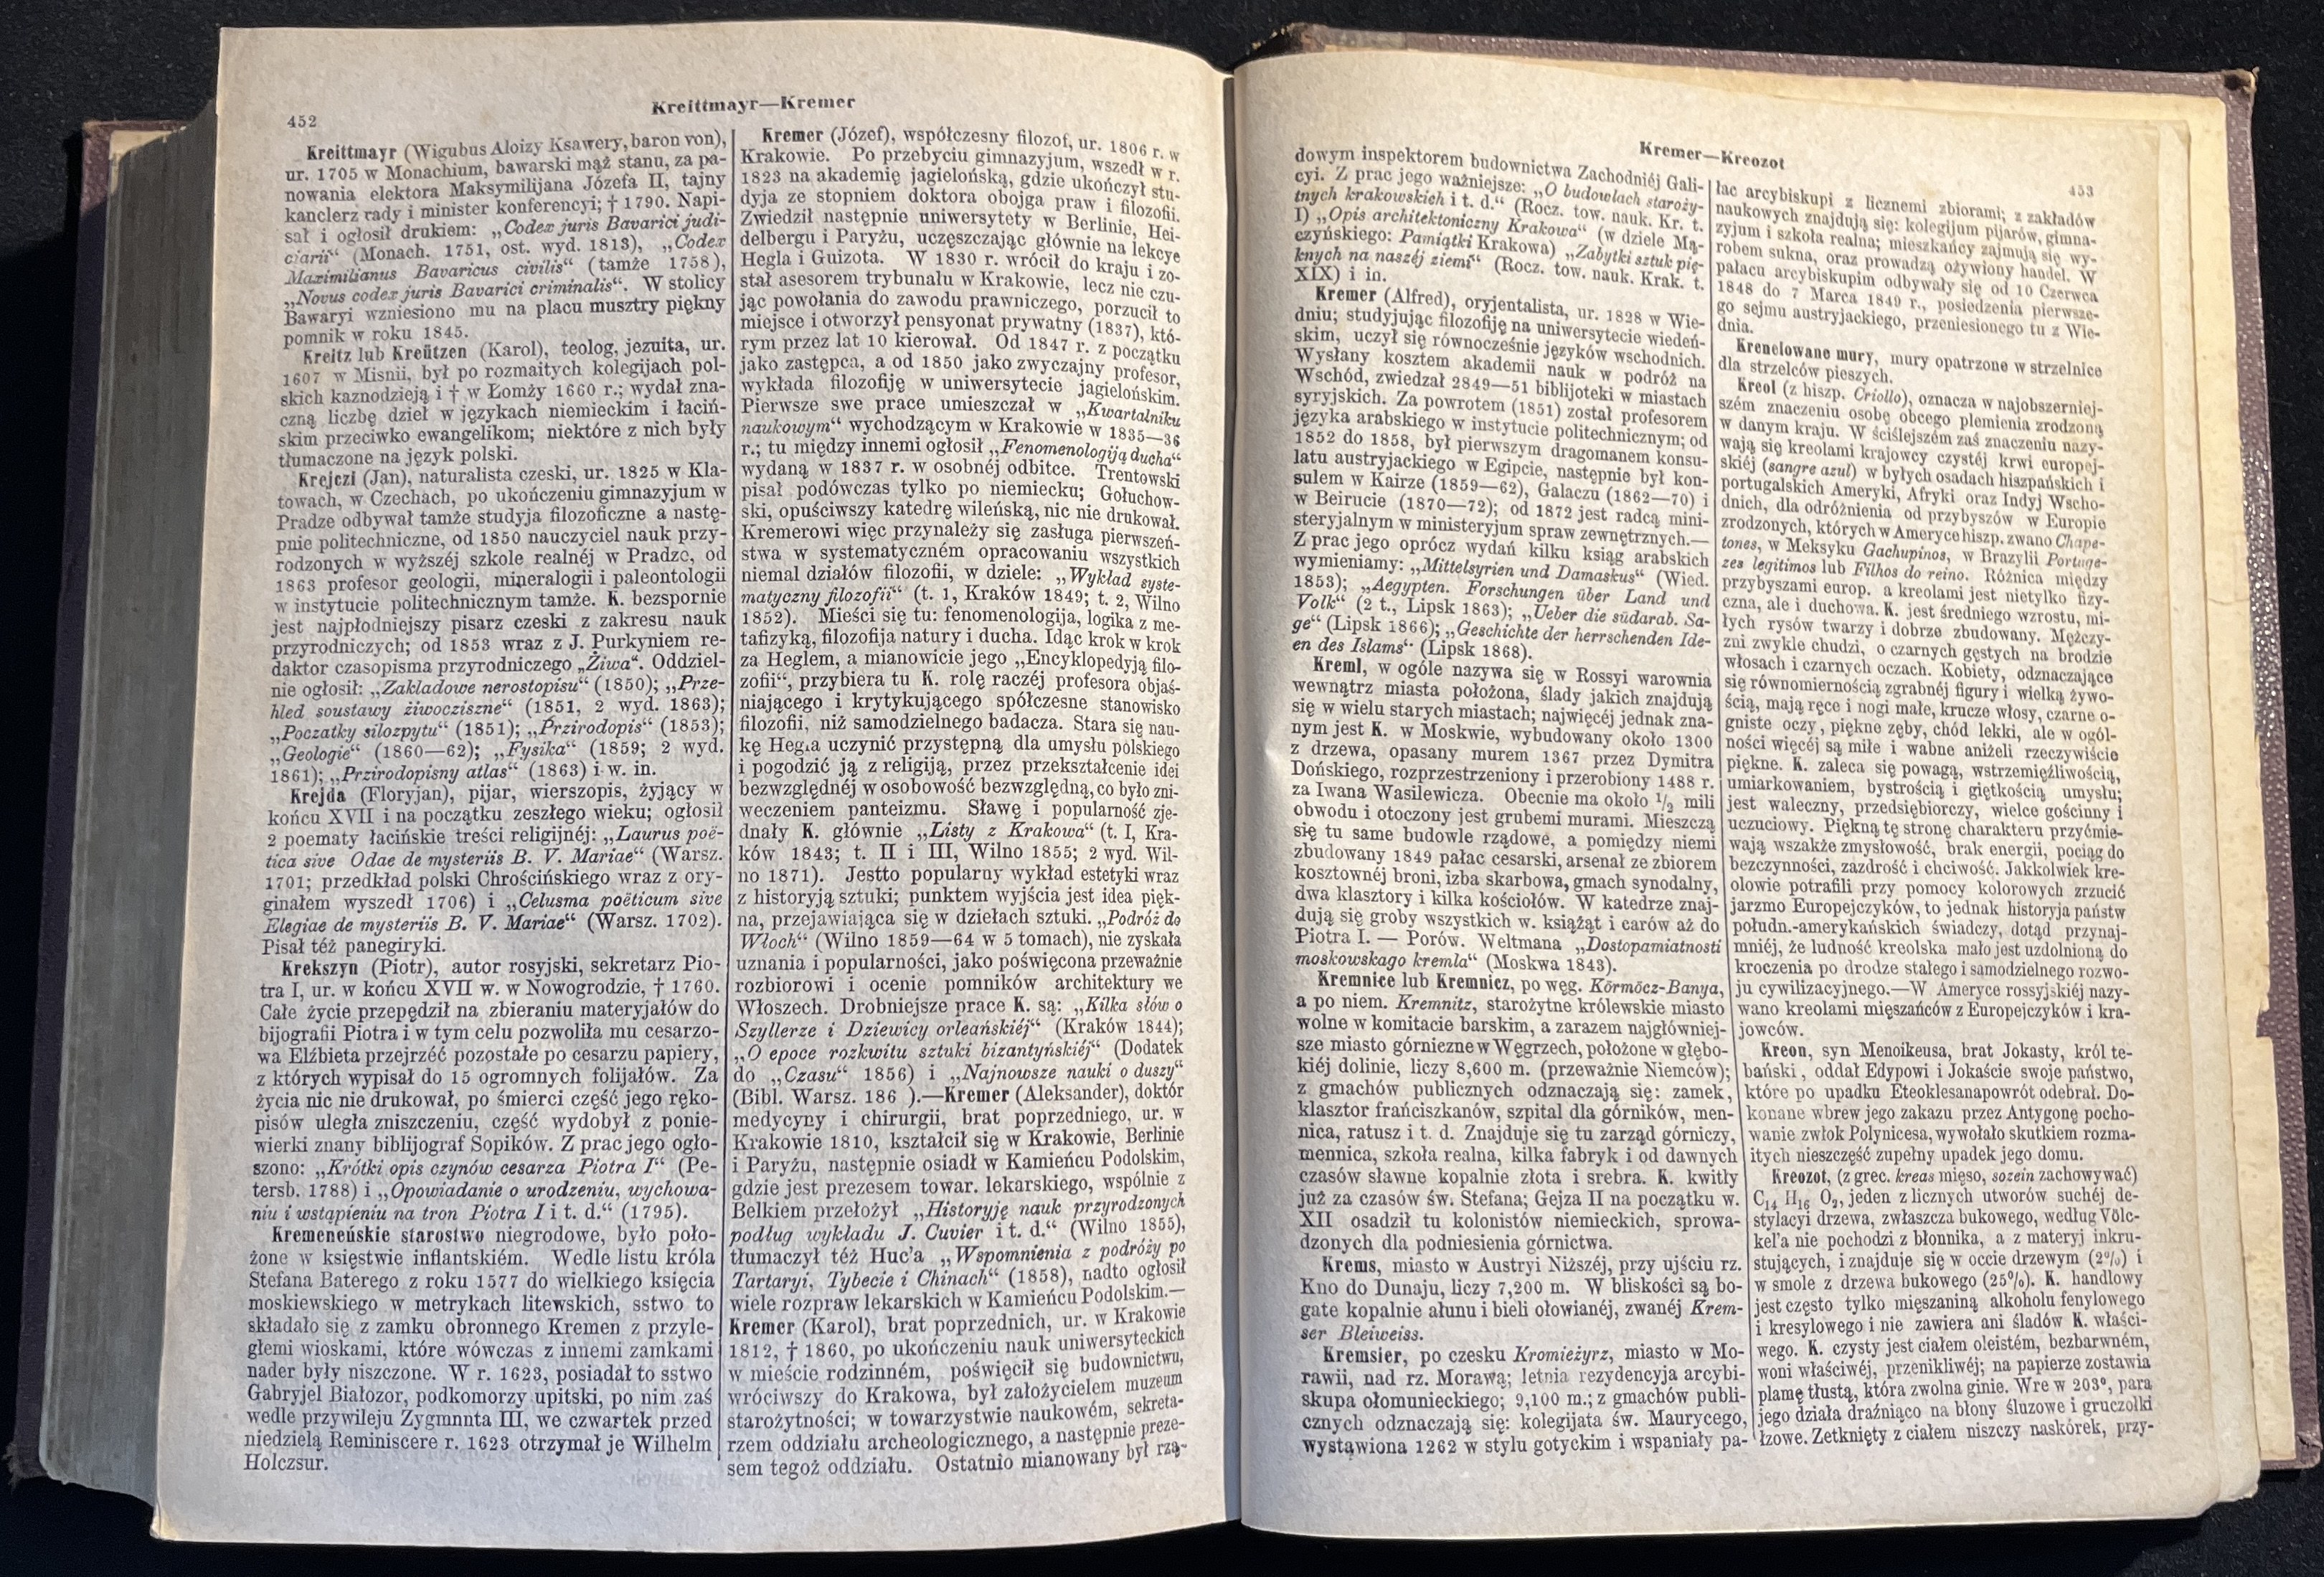 452
Kreittmayr—Kremer
Kreittmayr (Wigubus Aloizy Ksawery, baron von),
ur. 1705 w Monachium, bawarski mąż stanu, za pa-
nowania elektora Maksymilijana Józefa II, tajny
kanclerz rady i minister konferencyi; † 1790. Napi-
sał i ogłosił drukiem: „Codex juris Bavarici judi-
ciarii“ (Monach. 1751, ost. wyd. 1813), „Codex
Maximilianus Bavaricus civilis“ (tamże 1758),
„Novus codex juris Bavarici criminalis“. W stolicy
Bawaryi wzniesiono mu na placu musztry piękny
pomnik w roku 1845.
Kreitz lub Kreützen (Karol), teolog, jezuita, ur.
1607 w Misnii, był po rozmaitych kolegijach pol-
skich kaznodzieją i † w Łomży 1660 r.; wydał zna-
czną liczbę dzieł w językach niemieckim i łaciń-
skim przeciwko ewangelikom; niektóre z nich były
tłumaczone na język polski.
Krejczi (Jan), naturalista czeski, ur. 1825 w Kla-
towach, w Czechach, po ukończeniu gimnazyjum w
Pradze odbywał tamże studyja filozoficzne a nastę-
pnie politechniczne, od 1850 nauczyciel nauk przy-
rodzonych w wyższéj szkole realnéj w Pradze, od
1863 profesor geologii, mineralogii i paleontologii
w instytucie politechnicznym tamże. K. bezspornie
jest najpłodniejszy pisarz czeski z zakresu nauk
przyrodniczych; od 1853 wraz z J. Purkyniem re-
daktor czasopisma przyrodniczego „Żiwa“. Oddziel-
nie ogłosił: „Zakladowe nerostopisu“ (1850); „Prze-
hled soustawy żiwocziszne“ (1851, 2 wyd. 1863);
„Poczatky silozpytu“ (1851); „Przirodopis“ (1853);
„Geologie“ (1860—62); „Fysika“ (1859; 2 wyd.
1861); „Przirodopisny atlas“ (1863) i w. in.
Krejda (Floryjan), pijar, wierszopis, żyjący w
końcu XVII i na początku zeszłego wieku; ogłosił
2 poematy łacińskie treści religijnéj: „Laurus poë-
tica sive Odae de mysteriis B. V. Mariae“ (Warsz.
1701; przedkład polski Chrościńskiego wraz z ory-
ginałem wyszedł 1706) i „Celusma poëticum sive
Elegiae de mysteriis B. V. Mariae“ (Warsz. 1702).
Pisał téż panegiryki.
Krekszyn (Piotr), autor rosyjski, sekretarz Pio-
tra I, ur. w końcu XVII w. w Nowogrodzie, † 1760.
Całe życie przepędził na zbieraniu materyjałów do
bijografii Piotra i w tym celu pozwoliła mu cesarzo-
wa Elżbieta przejrzéć pozostałe po cesarzu papiery,
z których wypisał do 15 ogromnych folijałów. Za
życia nic nie drukował, po śmierci część jego ręko-
pisów uległa zniszczeniu, część wydobył z ponie-
wierki znany biblijograf Sopików. Z prac jego ogło-
szono: „Krótki opis czynów cesarza Piotra I“ (Pe-
tersb. 1788) i „Opowiadanie o urodzeniu, wychowa-
niu i wstąpieniu na tron Piotra I i t. d.“ (1795).
Kremeneńskie starostwo niegrodowe, było poło-
żone w księstwie inflantskiém. Wedle listu króla
Stefana Baterego z roku 1577 do wielkiego księcia
moskiewskiego w metrykach litewskich, sstwo to
składało się z zamku obronnego Kremen z przyle-
głemi wioskami, które wówczas z innemi zamkami
nader były niszczone. W r. 1623, posiadał to sstwo
Gabryjel Białozor, podkomorzy upitski, po nim zaś
wedle przywileju Zygmnnta III, we czwartek przed
niedzielą Reminiscere r. 1623 otrzymał je Wilhelm
Holczsur.
Kremer (Józef), współczesny filozof, ur. 1806 r. w
Krakowie. Po przebyciu gimnazyjum, wszedł w r.
1823 na akademię jagielońską, gdzie ukończył stu-
dyja ze stopniem doktora obojga praw i filozofii.
Zwiedził następnie uniwersytety w Berlinie, Hei-
delbergu i Paryżu, uczęszczając głównie na lekcye
Hegla i Guizota. W 1830 r. wrócił do kraju i zo-
stał asesorem trybunału w Krakowie, lecz nie czu-
jąc powołania do zawodu prawniczego, porzucił to
miejsce i otworzył pensyonat prywatny (1837), któ-
rym przez lat 10 kierował. Od 1847 r. z początku
jako zastępca, a od 1850 jako zwyczajny profesor,
wykłada filozofiję w uniwersytecie jagielońskim.
Pierwsze swe prace umieszczał w „Kwartalniku
naukowym“ wychodzącym w Krakowie w 1835—36
r.; tu między innemi ogłosił „Fenomenologiją ducha“
wydaną w 1837 r. w osobnéj odbitce. Trentowski
pisał podówczas tylko po niemiecku; Gołuchow-
ski, opuściwszy katedrę wileńską, nic nie drukował.
Kremerowi więc przynależy się zasługa pierwszeń-
stwa w systematyczném opracowaniu wszystkich
niemal działów filozofii, w dziele: „Wykład syste-
matyczny filozofii“ (t. 1, Kraków 1849; t. 2, Wilno
1852). Mieści się tu: fenomenologija, logika z me-
tafizyką, filozofija natury i ducha. Idąc krok w krok
za Heglem, a mianowicie jego „Encyklopedyją filo-
zofii“, przybiera tu K. rolę raczéj profesora objaś-
niającego i krytykującego spółczesne stanowisko
filozofii, niż samodzielnego badacza. Stara się nau-
kę Hegla uczynić przystępną dla umysłu polskiego
i pogodzić ją z religiją, przez przekształcenie idei
bezwzględnéj w osobowość bezwzględną, co było zni-
weczeniem panteizmu. Sławę i popularność zje-
dnały K. głównie „Listy z Krakowa“ (t. I, Kra-
ków 1843; t. II i III, Wilno 1855; 2 wyd. Wil-
no 1871). Jestto popularny wykład estetyki wraz
z historyją sztuki; punktem wyjścia jest idea pięk-
na, przejawiająca się w dziełach sztuki. „Podróż do
Włoch“ (Wilno 1859—64 w 5 tomach), nie zyskała
uznania i popularności, jako poświęcona przeważnie
rozbiorowi i ocenie pomników architektury we
Włoszech. Drobniejsze prace K. są: „Kilka słów o
Szyllerze i Dziewicy orleańskiéj“ (Kraków 1844);
„O epoce rozkwitu sztuki bizantyńskiéj“ (Dodatek
do „Czasu“ 1856) i „Najnowsze nauki o duszy“
(Bibl. Warsz. 186 ).—Kremer (Aleksander), doktór
medycyny i chirurgii, brat poprzedniego, ur. w
Krakowie 1810, kształcił się w Krakowie, Berlinie
i Paryżu, następnie osiadł w Kamieńcu Podolskim,
gdzie jest prezesem towar. lekarskiego, wspólnie z
Belkiem przełożył „Historyję nauk przyrodzonych
podług wykładu J. Cuvier i t. d.“ (Wilno 1855),
tłumaczył téż Huc’a „Wspomnienia z podróży po
Tartaryi, Tybecie i Chinach“ (1858), nadto ogłosił
wiele rozpraw lekarskich w Kamieńcu Podolskim.—
Kremer (Karol), brat poprzednich, ur. w Krakowie
1812, † 1860, po ukończeniu nauk uniwersyteckich
w mieście rodzinném, poświęcił się budownictwu,
wróciwszy do Krakowa, był założycielem muzeum
starożytności; w towarzystwie naukowém, sekreta-
rzem oddziału archeologicznego, a następnie preze-
sem tegoż oddziału. Ostatnio mianowany był rzą-
Kremer—Kreozot
453
dowym inspektorem budownictwa Zachodniéj Gali-
cyi. Z prac jego ważniejsze: „O budowlach staroży-
tnych krakowskich i t. d.“ (Rocz. tow. nauk. Kr. t.
I) „Opis architektoniczny Krakowa“ (w dziele Mą-
czyńskiego: Pamiątki Krakowa) „Zabytki sztuk pię-
knych na naszéj ziemi“ (Rocz. tow. nauk. Krak. t.
XIX) i in.
Kremer (Alfred), oryjentalista, ur. 1828 w Wie-
dniu; studyjując filozofiję na uniwersytecie wiedeń-
skim, uczył się równocześnie języków wschodnich.
Wysłany kosztem akademii nauk w podróż na
Wschód, zwiedzał 2849—51 biblijoteki w miastach
syryjskich. Za powrotem (1851) został profesorem
języka arabskiego w instytucie politechnicznym; od
1852 do 1858, był pierwszym dragomanem konsu-
latu austryjackiego w Egipcie, następnie był kon-
sulem w Kairze (1859—62), Galaczu (1862—70) i
w Beirucie (1870—72); od 1872 jest radcą mini-
steryjalnym w ministeryjum spraw zewnętrznych.—
Z prac jego oprócz wydań kilku ksiąg arabskich
wymieniamy: „Mittelsyrien und Damaskus“ (Wied.
1853); „Aegypten. Forschungen über Land und
Volk“ (2 t., Lipsk 1863); „Ueber die südarab. Sa-
ge“ (Lipsk 1866); „Geschichte der herrschenden Ide-
en des Islams“ (Lipsk 1868).
Kreml, w ogóle nazywa się w Rossyi warownia
wewnątrz miasta położona, ślady jakich znajdują
się w wielu starych miastach; najwięcéj jednak zna-
nym jest K. w Moskwie, wybudowany około 1300
z drzewa, opasany murem 1367 przez Dymitra
Dońskiego, rozprzestrzeniony i przerobiony 1488 r.
za Iwana Wasilewicza. Obecnie ma około 1/2 mili
obwodu i otoczony jest grubemi murami. Mieszczą
się tu same budowle rządowe, a pomiędzy niemi
zbudowany 1849 pałac cesarski, arsenał ze zbiorem
kosztownéj broni, izba skarbowa, gmach synodalny,
dwa klasztory i kilka kościołów. W katedrze znaj-
dują się groby wszystkich w. książąt i carów aż do
Piotra I. — Porów. Weltmana „Dostopamiatnosti
moskowskago kremla“ (Moskwa 1843).
Kremnice lub Kremnicz, po węg. Körmöcz-Banya,
a po niem. Kremnitz, starożytne królewskie miasto
wolne w komitacie barskim, a zarazem najgłówniej-
sze miasto górniczne w Węgrzech, położone w głębo-
kiéj dolinie, liczy 8,600 m. (przeważnie Niemców);
z gmachów publicznych odznaczają się: zamek,
klasztor frańciszkanów, szpital dla górników, men-
nica, ratusz i t. d. Znajduje się tu zarząd górniczy,
mennica, szkoła realna, kilka fabryk i od dawnych
czasów sławne kopalnie złota i srebra. K. kwitły
już za czasów św. Stefana; Gejza II na początku w.
XII osadził tu kolonistów niemieckich, sprowa-
dzonych dla podniesienia górnictwa.
Krems, miasto w Austryi Niższéj, przy ujściu rz.
Kno do Dunaju, liczy 7,200 m. W bliskości są bo-
gate kopalnie ałunu i bieli ołowianéj, zwanéj Krem-
ser Bleiweiss.
Kremsier, po czesku Kromieżyrz, miasto w Mo-
rawii, nad rz. Morawą; letnia rezydencyja arcybi-
skupa ołomunieckiego; 9,100 m.; z gmachów publi-
cznych odznaczają się: kolegijata św. Maurycego,
wystawiona 1262 w stylu gotyckim i wspaniały pa-
łac arcybiskupi z licznemi zbiorami; z zakładów
naukowych znajdują się: kolegijum pijarów, gimna-
zyjum i szkoła realna; mieszkańcy zajmują się wy-
robem sukna, oraz prowadzą ożywiony handel. W
pałacu arcybiskupim odbywały się od 10 Czerwca
1848 do 7 Marca 1849 r., posiedzenia pierwsze-
go sejmu austryjackiego, przeniesionego tu z Wie-
dnia.
Krenelowane mury, mury opatrzone w strzelnice
dla strzelców pieszych.
Kreol (z hiszp. Criollo), oznacza w najobszerniej-
szém znaczeniu osobę obcego plemienia zrodzoną
w danym kraju. W ściślejszém zaś znaczeniu nazy-
wają się kreolami krajowcy czystéj krwi europej-
skiéj (sangre azul) w byłych osadach hiszpańskich i
portugalskich Ameryki, Afryki oraz Indyj Wscho-
dnich, dla odróżnienia od przybyszów w Europie
zrodzonych, których w Ameryce hiszp. zwano Chape-
tones, w Meksyku Gachupinos, w Brazylii Portuge-
zes legitimos lub Filhos do reino. Różnica między
przybyszami europ. a kreolami jest nietylko fizy-
czna, ale i duchowa. K. jest średniego wzrostu, mi-
łych rysów twarzy i dobrze zbudowany. Mężczy-
zni zwykle chudzi, o czarnych gęstych na brodzie
włosach i czarnych oczach. Kobiety, odznaczające
się równomiernością zgrabnéj figury i wielką żywo-
ścią, mają ręce i nogi małe, krucze włosy, czarne o-
gniste oczy, piękne zęby, chód lekki, ale w ogól-
ności więcéj są miłe i wabne aniżeli rzeczywiście
piękne. K. zaleca się powagą, wstrzemięźliwością,
umiarkowaniem, bystrością i giętkością umysłu;
jest waleczny, przedsiębiorczy, wielce gościnny i
uczuciowy. Piękną tę stronę charakteru przyćmie-
wają wszakże zmysłowość, brak energii, pociąg do
bezczynności, zazdrość i chciwość. Jakkolwiek kre-
olowie potrafili przy pomocy kolorowych zrzucić
jarzmo Europejczyków, to jednak historyja państw
połudn.-amerykańskich świadczy, dotąd przynaj-
mniéj, że ludność kreolska mało jest uzdolnioną do
kroczenia po drodze stałego i samodzielnego rozwo-
ju cywilizacyjnego.—W Ameryce rossyjskiéj nazy-
wano kreolami mięszańców z Europejczyków i kra-
jowców.
Kreon, syn Menoikeusa, brat Jokasty, król te-
bański, oddał Edypowi i Jokaście swoje państwo,
które po upadku Eteoklesanapowrót odebrał. Do-
konane wbrew jego zakazu przez Antygonę pocho-
wanie zwłok Polynicesa, wywołało skutkiem rozma-
itych nieszczęść zupełny upadek jego domu.
Kreozot, (z grec. kreas mięso, sozein zachowywać)
C14 H16 O2, jeden z licznych utworów suchéj de-
stylacyi drzewa, zwłaszcza bukowego, według Völc-
kel’a nie pochodzi z błonnika, a z materyj inkru-
stujących, i znajduje się w occie drzewym (2%) i
w smole z drzewa bukowego (25%). K. handlowy
jest często tylko mięszaniną alkoholu fenylowego
i kresylowego i nie zawiera ani śladów K. właści-
wego. K. czysty jest ciałem oleistém, bezbarwném,
woni właściwéj, przenikliwéj; na papierze zostawia
plamę tłustą, która zwolna ginie. Wre w 203°, para
jego działa draźniąco na błony śluzowe i gruczołki
łzowe. Zetknięty z ciałem niszczy naskórek, przy-